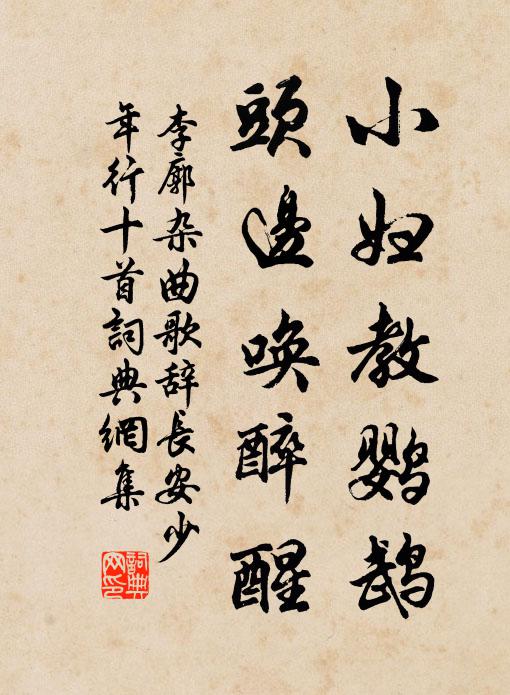 小妇教鹦鹉
頭邊唤醉醒
李廓杂曲歌辞長安少
年行十首詞典網集
詞典网印